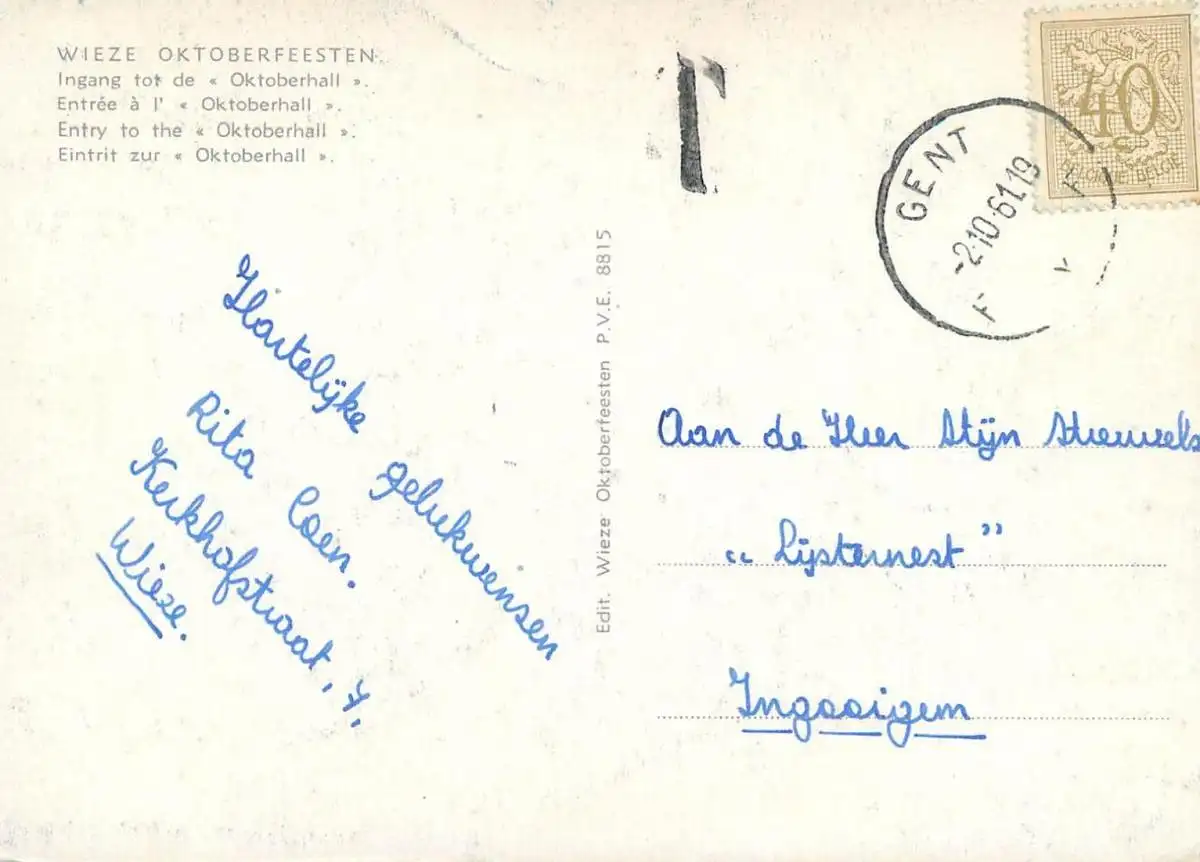 WIEZE OKTOBERFEESTEN.
Ingang tot de « Oktoberhall ».
Entrée à l' « Oktoberhall ».
Entry to the « Oktoberhall ».
Eintrit zur « Oktoberhall ».
T
40
BELGIQUE-BELGIE
GENT
-2.10-61.19
Edit. Wieze Oktoberfeesten P.V.E. 8815
Hartelijke gelukwensen
Rita Coen.
Kerkhofstraat, 7.
Wieze.
Aan de Heer Stijn Streuvels
“ Lijsternest ”
Ingooigem